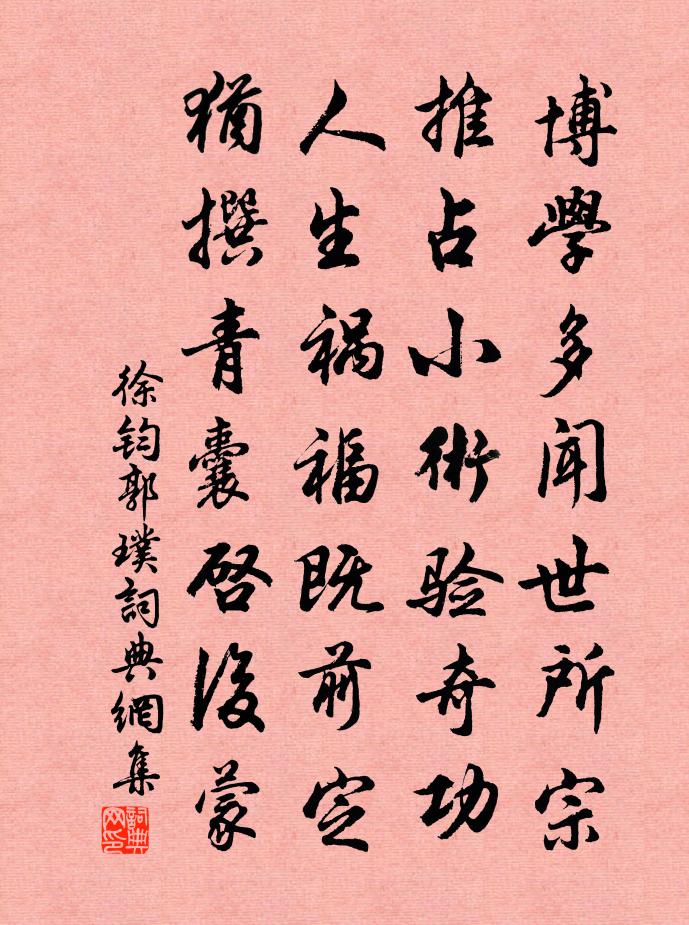 博學多闻世所宗
推占小術验奇功
人生禍福既前定
猶撰青囊啓後蒙
徐鈞郭璞詞典網集
詞典网印